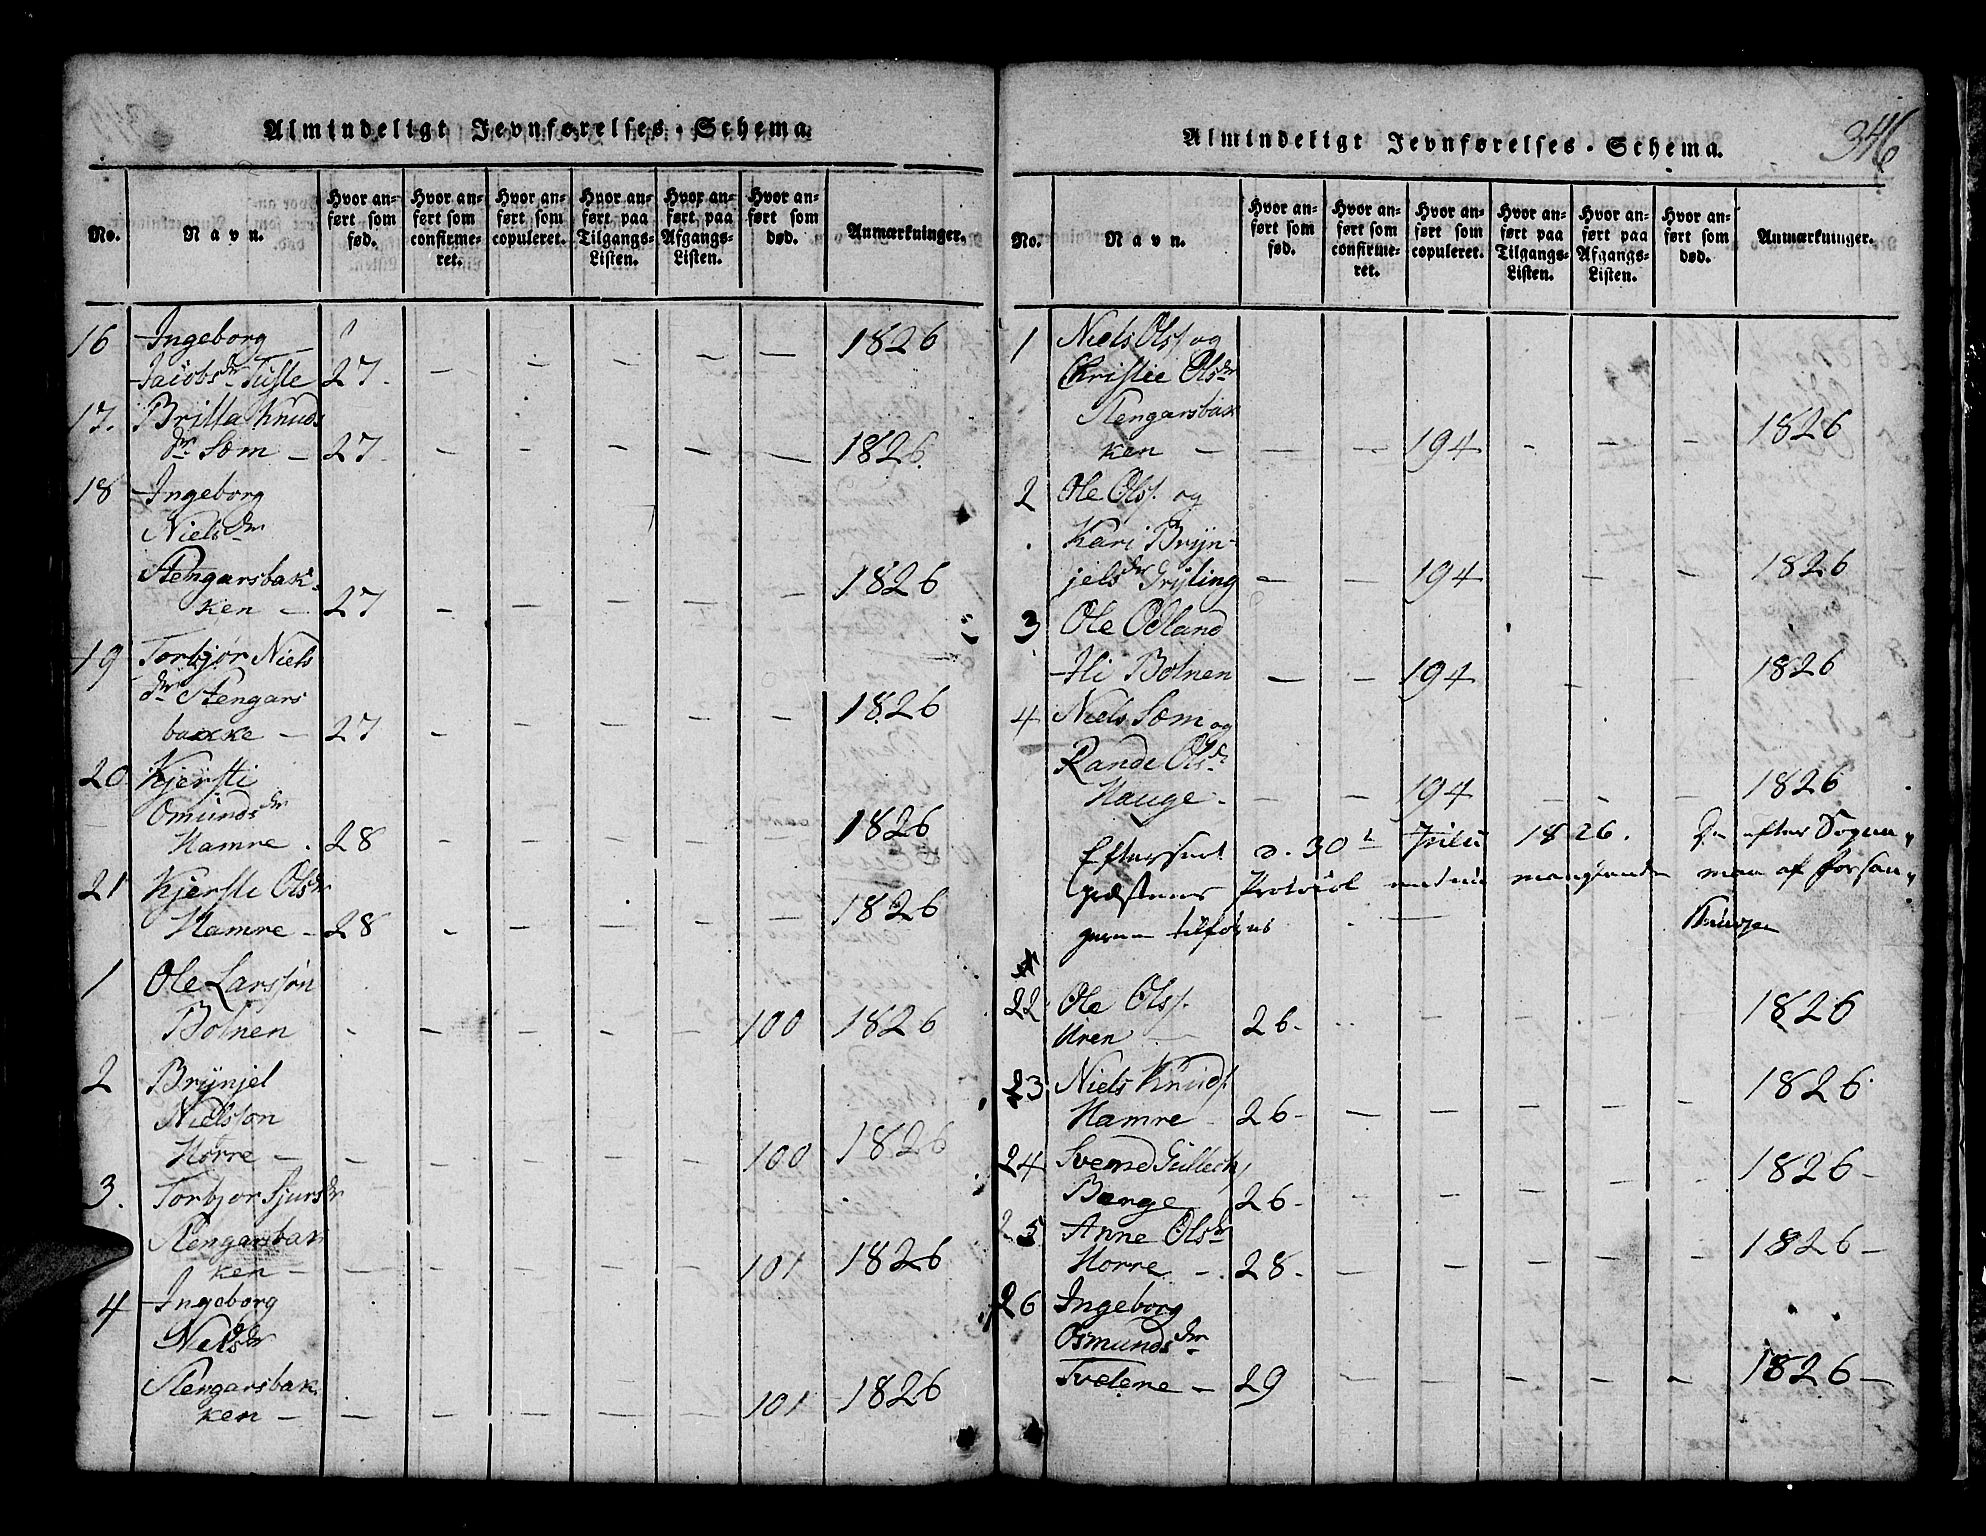 Almindeligt Jevnførelses-Schema.
No.
Navn.
Hvor anført som fød.
Hvor anført som confirmeret.
Hvor anført som copuleret.
Hvor anført paa Tilgangs-Listen.
Hvor anført paa Afgangs-Listen.
Hvor anført som død.
Anmærkninger.
16 Ingeborg 1826
Jacobsdr Tufte 27.
17. Britta Knuds
dr Søm – 27 – – – – – 1826.
18 Ingeborg
Nielsdr
Stengarsbak- 1826
ken – 27 – – – – –
19 Torbjør Niels
dr Stengars 1826
bakke – 27 – – – – –
20 Kjersti
Omundsdr 1826
Hamre . 28 – – – – –
21 Kjersti Olsdr 1826
Hamre – 28 – – – – –
1 Ole Larssøn
Botnen – – – – – 100 1826
2 Brynjel
Nielsson
Horre – – – – – – 100 1826
3. Torbjor Sjursdr
Stengarsbak
ken – – – – – – 101 1826
4 Ingeborg
Nielsdr
Stengarsbak
ken – – – – – – 101 1826
Almindeligt Jevnførelses-Schema.
346
No.
Navn.
Hvor anført som fød.
Hvor anført som confirmeret.
Hvor anført som copuleret.
Hvor anført paa Tilgangs-Listen.
Hvor anført paa Afgangs-Listen.
Hvor anført som død.
Anmærkninger.
1 Niels Olss. og
Christie Olsdr
Stengarsbak
ken – – – 194 – – – 1826
2 Ole Olss. og
Kari Bryn-
jelsdr Gryting – – 194 – – 1826
3 Ole Odland
Hi Botnen – – 194 – – 1826
4 Niels Søm og
Rande Olsdr
Hauge – – – 194 – – – 1826
Efterseet d. 30 1826. efter Sogne-
præstens Protocol manglende af Forsan-
geren tilføies Knudsen
22 Ole Olss.
Uren – 26 – – – – – – 1826
23 Niels Knuds.
Hamre – 26 – – – – – – 1826
24 Svend
Berge 26 – – – – – – 1826 –
25 Anne Olsdr
Horre – 28 – – – – – – 1826 –
26 Ingeborg
Osmundsdr
Tvetene – 29 – – – – – 1826 –